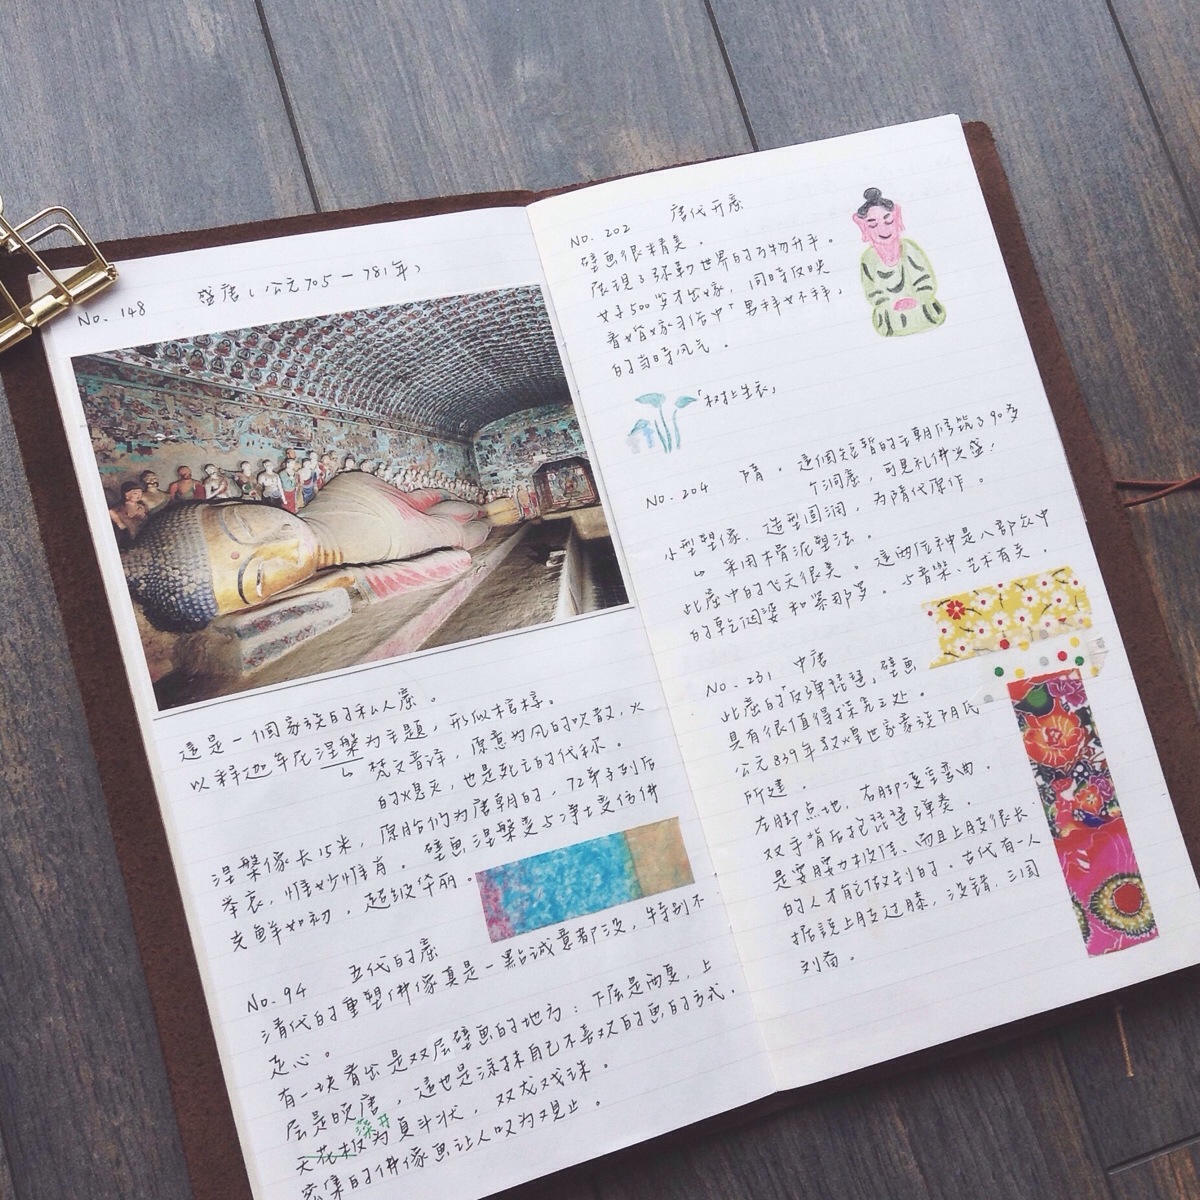 盛唐（公元705－781年）
No. 148
這是一個家族的私人窟。
以释迦牟尼涅槃为主題，形似棺椁。
↳ 梵文音译，原意为风的吹散，火
的熄灭，也是死亡的代称。
涅槃像长15米，原胎仍为唐朝的，72弟子列后
举哀，惟妙惟肖。壁画涅槃变与净土变仿佛
光鲜如初，超级华丽。
No. 94 五代的窟
清代的重塑佛像真是一點诚意都没，特别不
走心。
有一块看出是双层壁画的地方：下层是西夏，上
层是晚唐，這也是涂抹自己不喜欢的画的方式.
天花板为覆斗状，双龙戏珠。
藻井
密集的佛像画让人叹为观止。
唐代开窟
No. 202
壁画很精美。
展現了弥勒世界的万物升平。
女子500岁才出嫁，同時反映
着婚嫁习俗中「男拜女不拜」
的当時风气。
「树上生衣」
No. 204 隋。這個短暂的王朝修筑了90多
个洞窟，可見礼佛之盛！
小型塑像，造型圆润，为隋代原作。
↳ 采用木骨泥塑法。
此窟中的飞天很美。這两位神是八部众中
的乾闼婆和紧那罗。与音樂、艺术有关。
No. 231 中唐
此窟的"反弹琵琶"壁画
具有很值得探究之处。
公元839年敦煌世家豪族阴氏
所建。
左脚点地，右脚凌空弯曲，
双手背后抱琵琶弹奏。
是要腰力极佳、而且上肢很长
的人才能做到的。古代有一人
据說上肢过膝，没错，三国
刘备。